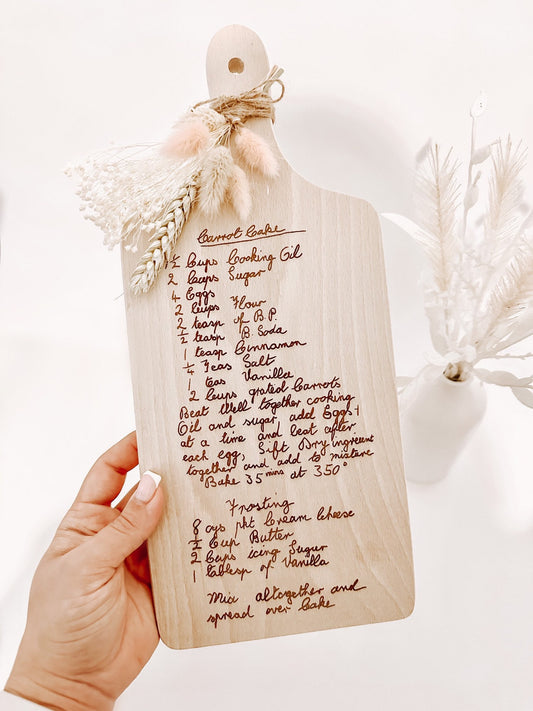 Carrot Cake
½ Cups Cooking Oil
2 Cups Sugar
4 Eggs
2 Cups Flour
2 teasp of B.P.
½ teasp B. Soda
1 teasp Cinnamon
¼ Teas Salt
1 Teas Vanilla
2 Cups grated Carrots
Beat Well together cooking
Oil and sugar, add Eggs 1
at a time and beat after
each egg, Sift Dry ingredient
together and add to mixture
Bake 35 mins at 350°
Frosting
8 ozs pkt Cream Cheese
½ Cup Butter
2 Cups icing Sugar
1 tablesp of Vanilla
Mix altogether and
spread over Cake